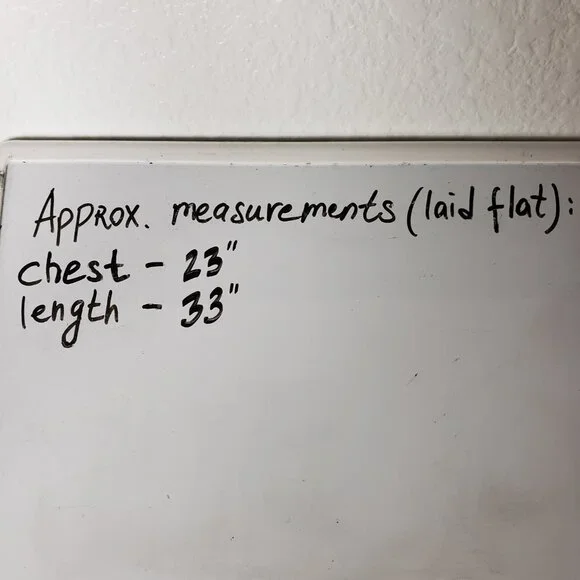 Approx. measurements (laid flat):
chest - 23"
length - 33"